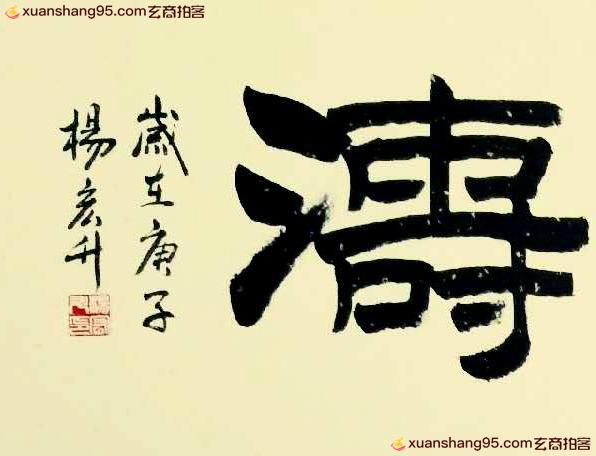 xuanshang95.com玄商拍客
濤
歲在庚子
楊宏升
xuanshang95.com玄商拍客